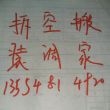 拆空搬
装调家
13554814920